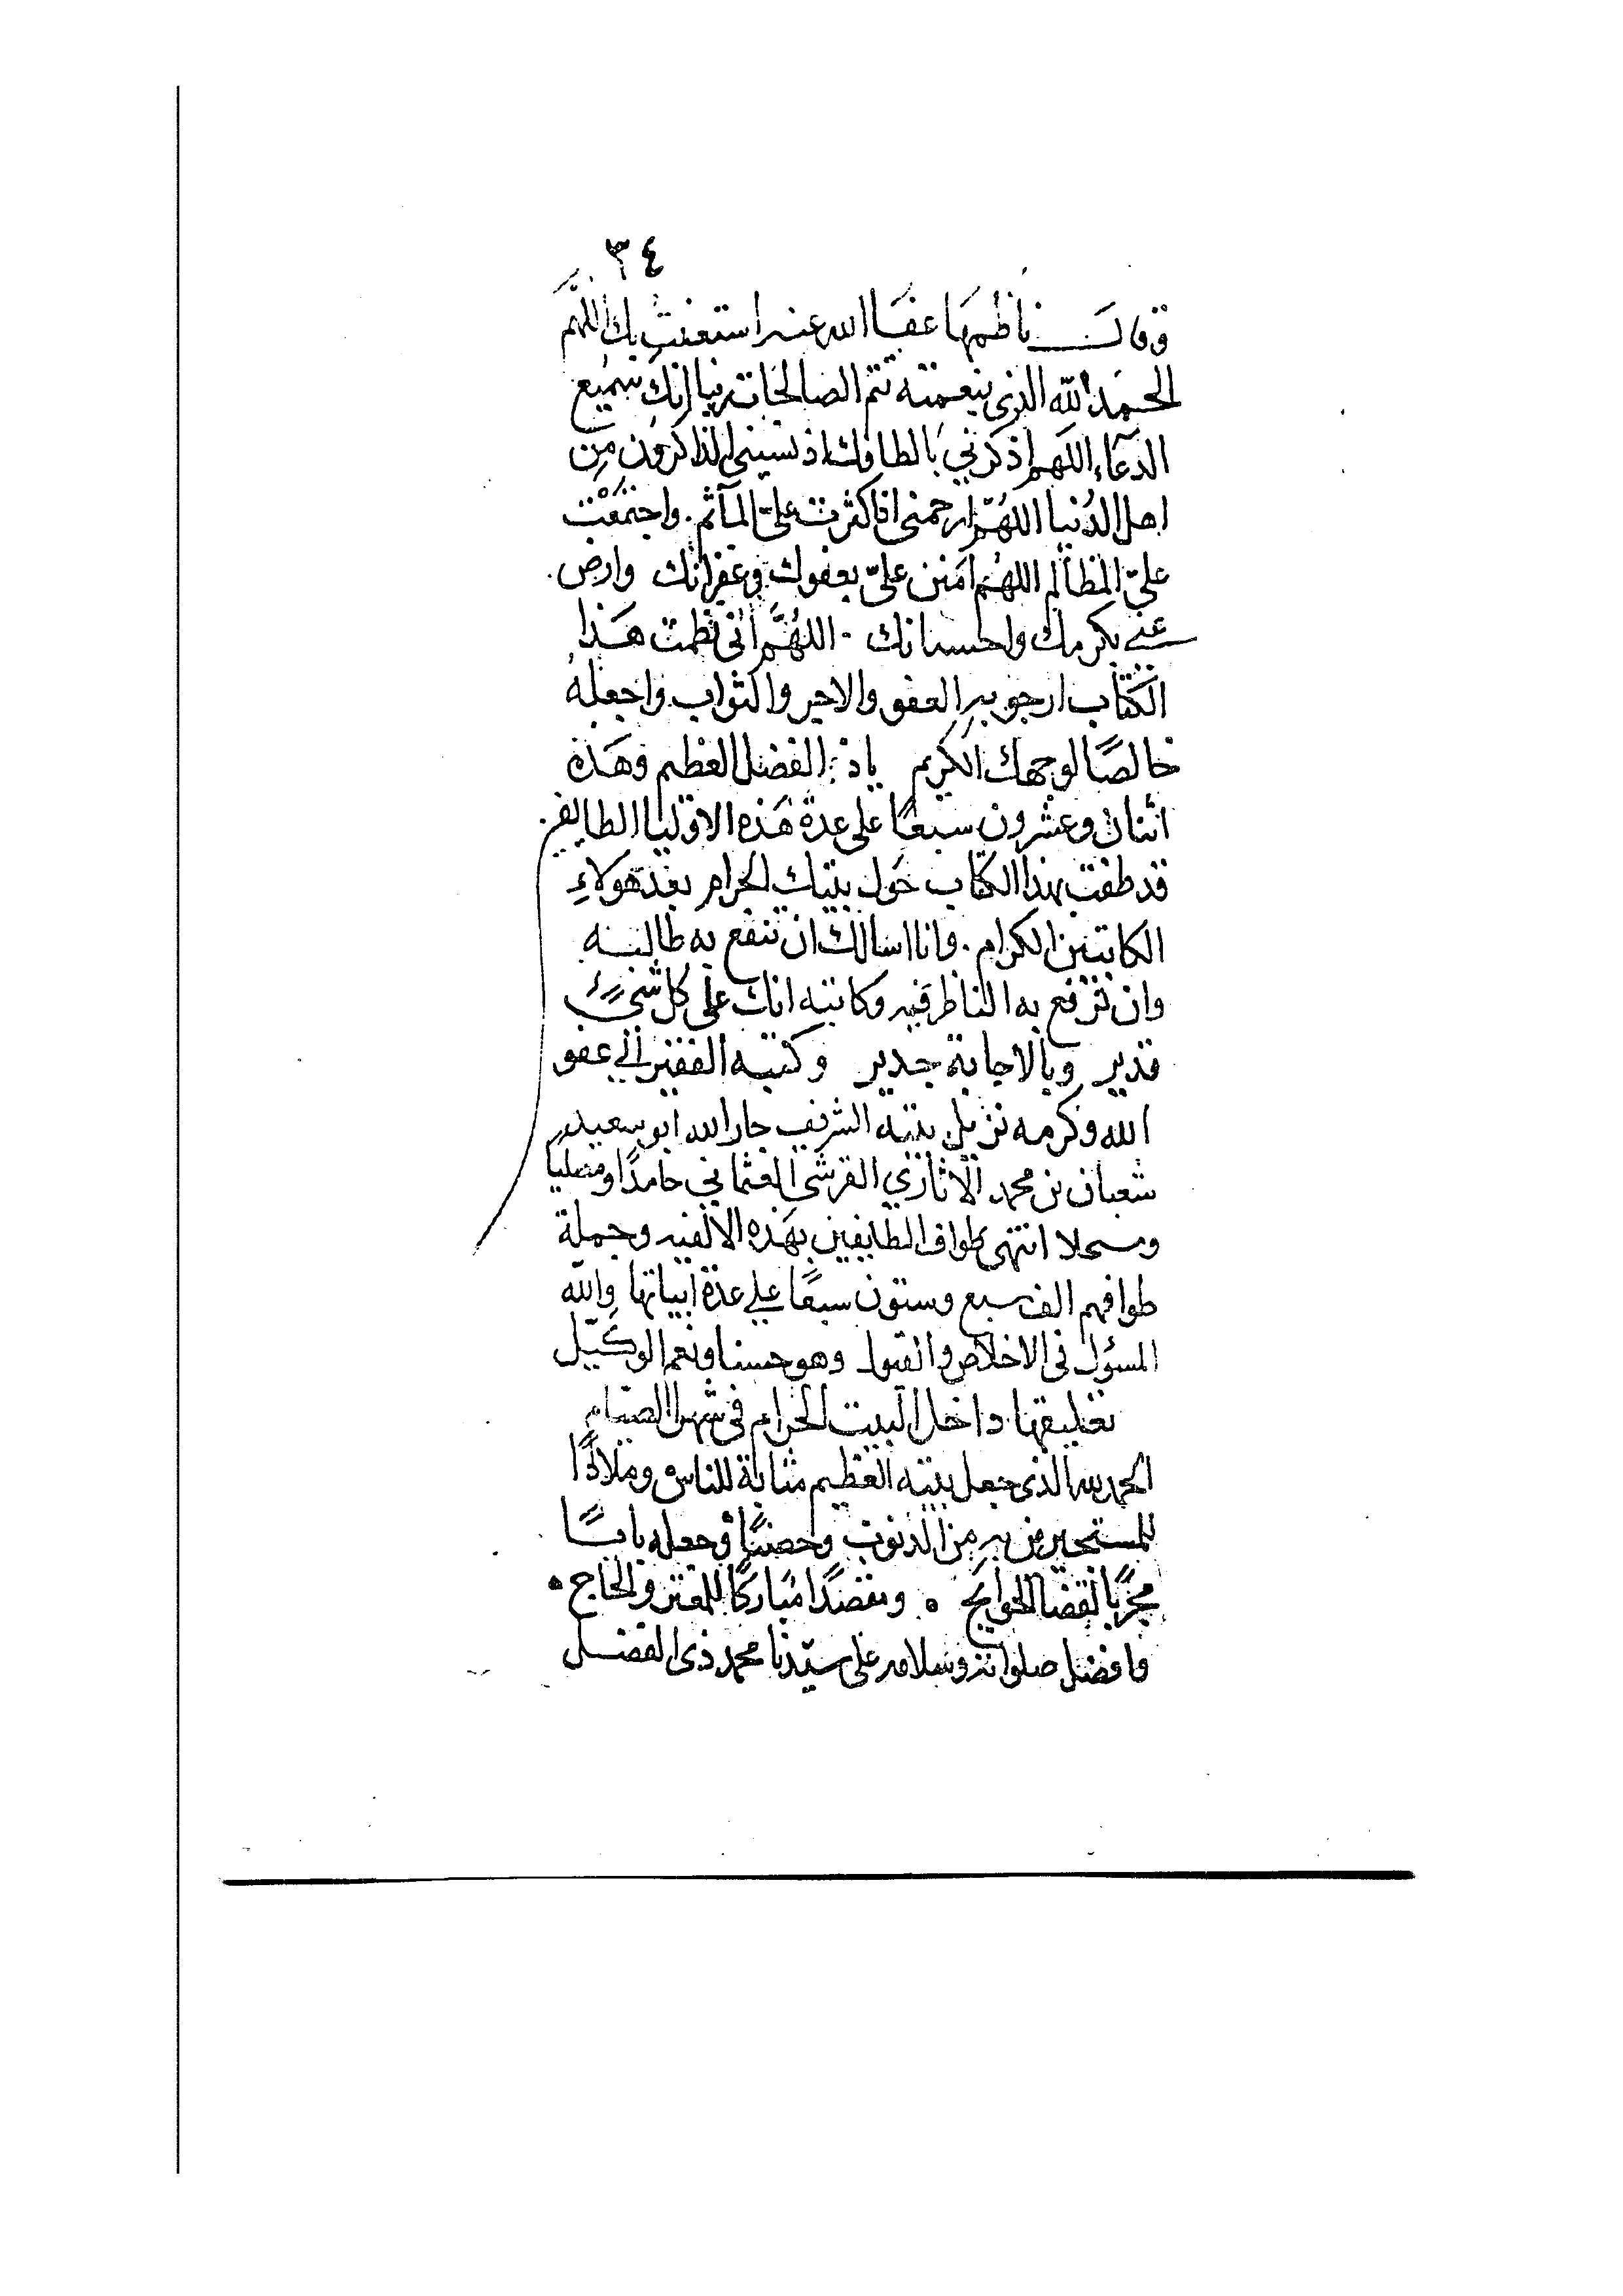 ٣٤
وقال ناظمها عفا الله عنه استعنت بك اللهم
الحمد لله الذي بنعمته تتم الصالحات ربنا انك سميع
الدعاء اللهم اذكرني بالطافك اذ نسيني الذاكرون من
اهل الدنيا اللهم ارحمني اذا كثرت علي المآثم . واجتمعت
علي المظالم اللهم امنن علي بعفوك وغفرانك وارض .
عني بكرمك واحسانك . اللهم اني نظمت هذا
الكتاب ارجو به العفو والاجر والثواب واجعله
خالصًا لوجهك الكريم ياذا الفضل العظيم وهذه
اثنان وعشرون سبعًا على عدة هذه الاوليا الطايفين
قد طفت بهذا الكتاب حول بيتك الحرام بعد هولاء
الكاتبين الكرام . وانا اسالك ان تنفع به طالبه
وان ترفع به الناظر فيه وكاتبه انك على كل شيء
قدير وبالاجابة جدير وكتبه الفقير الي عفو
الله وكرمه نزيل بيته الشريف جار الله ابو سعيد
شعبان بن محمد الاثاري القرشي العثماني حامدًا ومصليًا
ومسحلا انتهى طواف الطايفين بهذه الالفيه وجملة
طوافهم الف سبع وستون سبعًا علي عدة ابياتها والله
المسؤل في الاخلاص والقبول وهو حسبنا ونعم الوكيل
تعليقها داخل البيت الحرام في شهر الصيام
الحمد لله الذي جعل بيته العظيم مثابة للناس وملاذًا
للمستجيرين به من الذنوب وحصنًا وجعله بابًا
مجربًا لقضا الحوايج ٥ ومقصدًا مباركًا للمعتمر والحاج ٥
وافضل صلواته وسلامه على سيدنا محمد ذي الفضل